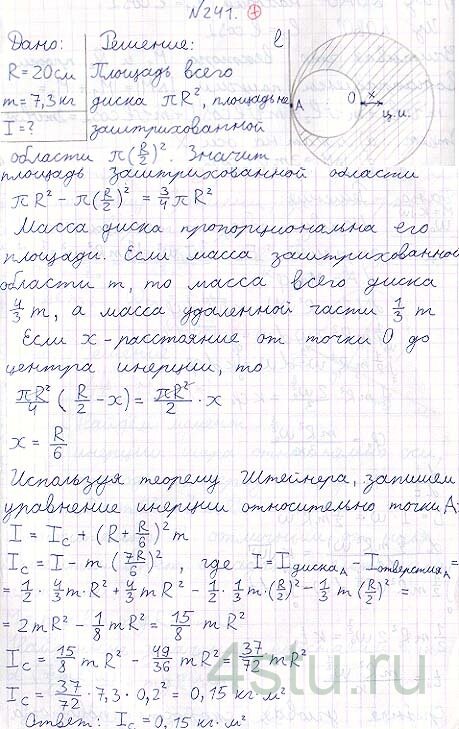 №241. +
Дано: Решение: l
R=20см Площадь всего
m=7,3кг диска πR², площадь не A O x
I=? заштрихованной ц.и.
области π(R/2)². Значит
площадь заштрихованной области
πR² - π(R/2)² = 3/4 πR²
Масса диска пропорциональна его
площади. Если масса заштрихованной
области m, то масса всего диска
4/3 m, а масса удаленной части 1/3 m
Если x - расстояние от точки O до
центра инерции, то
πR²/4 (R/2 - x) = πR²/2 · x
x = R/6
Используя теорему Штейнера, запишем
уравнение инерции относительно точки A:
I = I_C + (R + R/6)² m
I_C = I - m (7R/6)², где I = I диска_A - I отверстия_A =
= 1/2 · 4/3 m · R² + 4/3 m R² - 1/2 · 1/3 m · (R/2)² - 1/3 m (R/2)² =
= 2mR² - 1/8 mR² = 15/8 mR²
I_C = 15/8 mR² - 49/36 mR² = 37/72 mR²
I_C = 37/72 · 7,3 · 0,2² = 0,15 кг·м²
Ответ: I_C = 0,15 кг·м²
4stu.ru